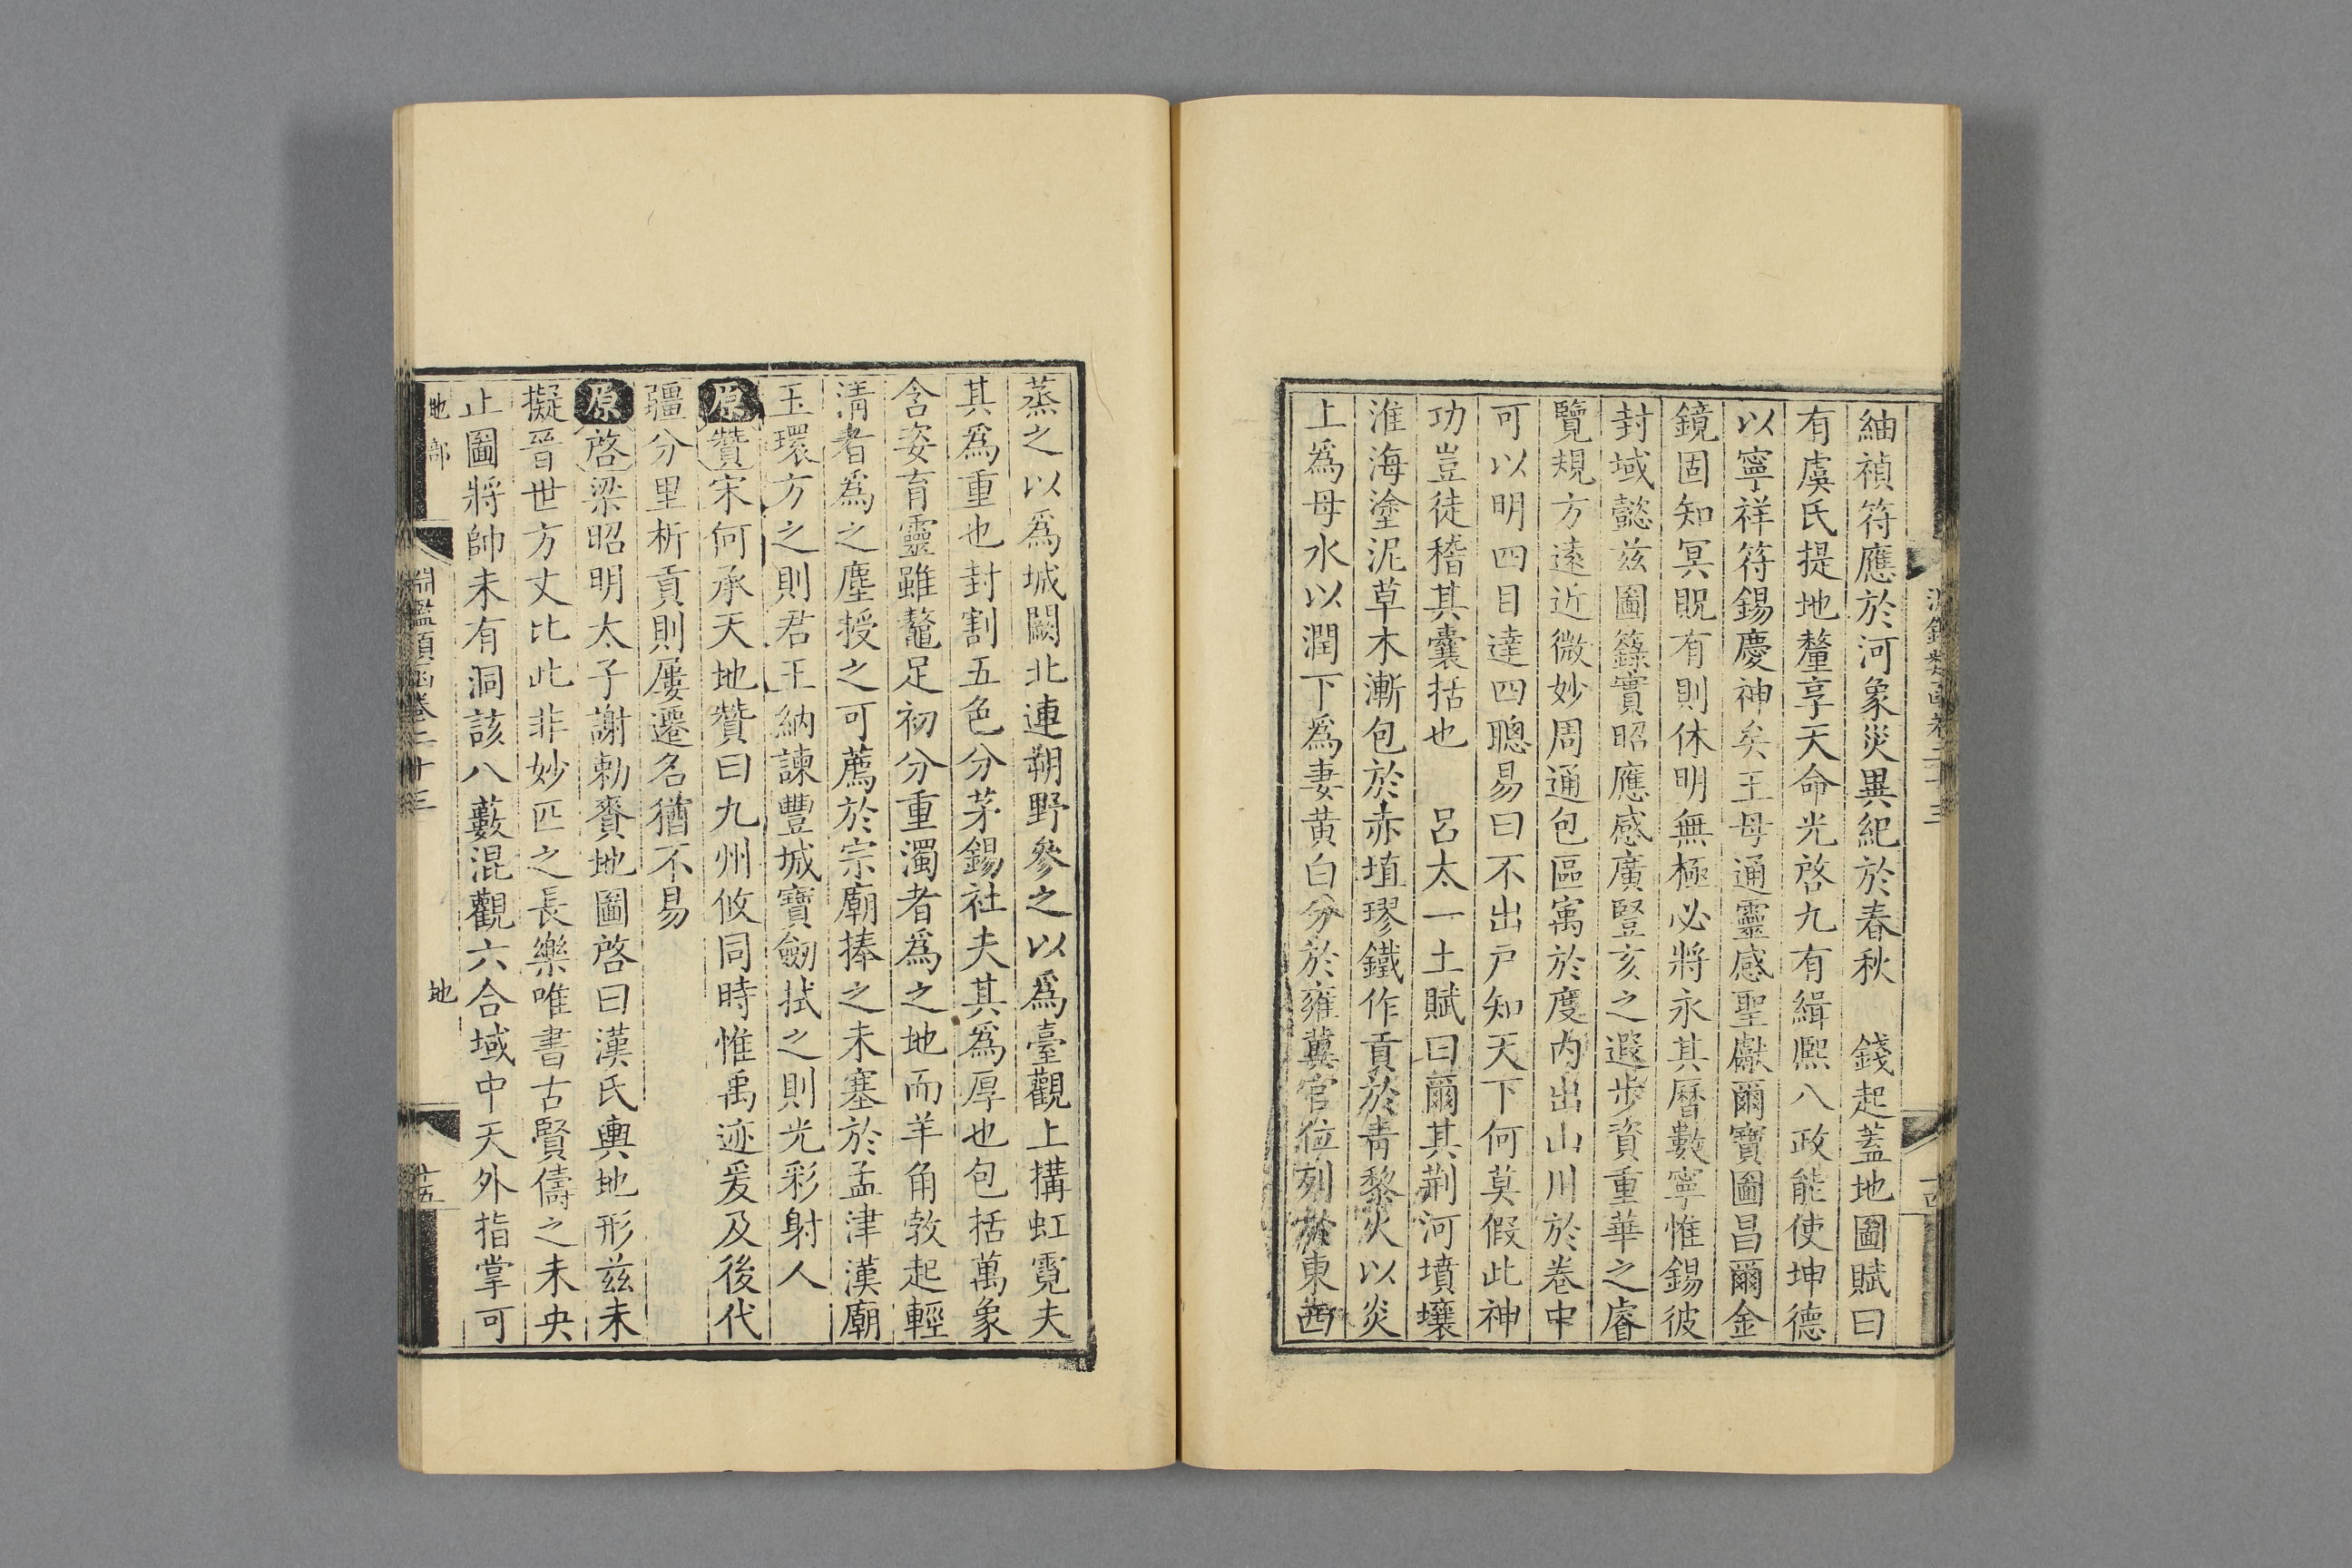 紬禎符應於河象災異紀於春秋　錢起蓋地圖賦曰
有虞氏提地釐享天命光啓九有緝熈八政能使坤德
以寧祥符錫慶神矣王母通靈感聖獻爾寶圖昌爾金
鏡固知冥貺有則休明無極必將永其曆數寧惟錫彼
封域懿兹圖籙實昭應感廣豎亥之遐步資重華之睿
覽規方遠近微妙周通包區㝢於度內出山川於卷中
可以明四目達四聰易曰不出户知天下何莫假此神
功豈徒稽其囊括也　呂太一土賦曰爾其荆河墳壤
淮海塗泥草木漸包於赤埴璆鐵作貢於青黎火以炎
上爲母水以潤下爲妻黄白分於雍冀官位列於東西
蒸之以爲城闕北連朔野參之以爲臺觀上搆虹霓夫
其爲重也封割五色分茅錫社夫其爲厚也包括萬象
含姿育靈雖鼇足初分重濁者爲之地而羊角敦起輕
清者爲之塵授之可薦於宗廟捧之未塞於孟津漢廟
玉環方之則君王納諫豐城寶劒拭之則光彩射人
原贊宋何承天地贊曰九州攸同時惟禹迹爰及後代
疆分里析貢則屢遷名猶不易
原啓梁昭明太子謝勑賚地圖啓曰漢氏輿地形兹未
擬晉世方丈比此非妙匹之長樂唯書古賢儔之未央
止圖將帥未有洞該八藪混觀六合域中天外指掌可
地部　淵鑑類函卷二十三　地　十五